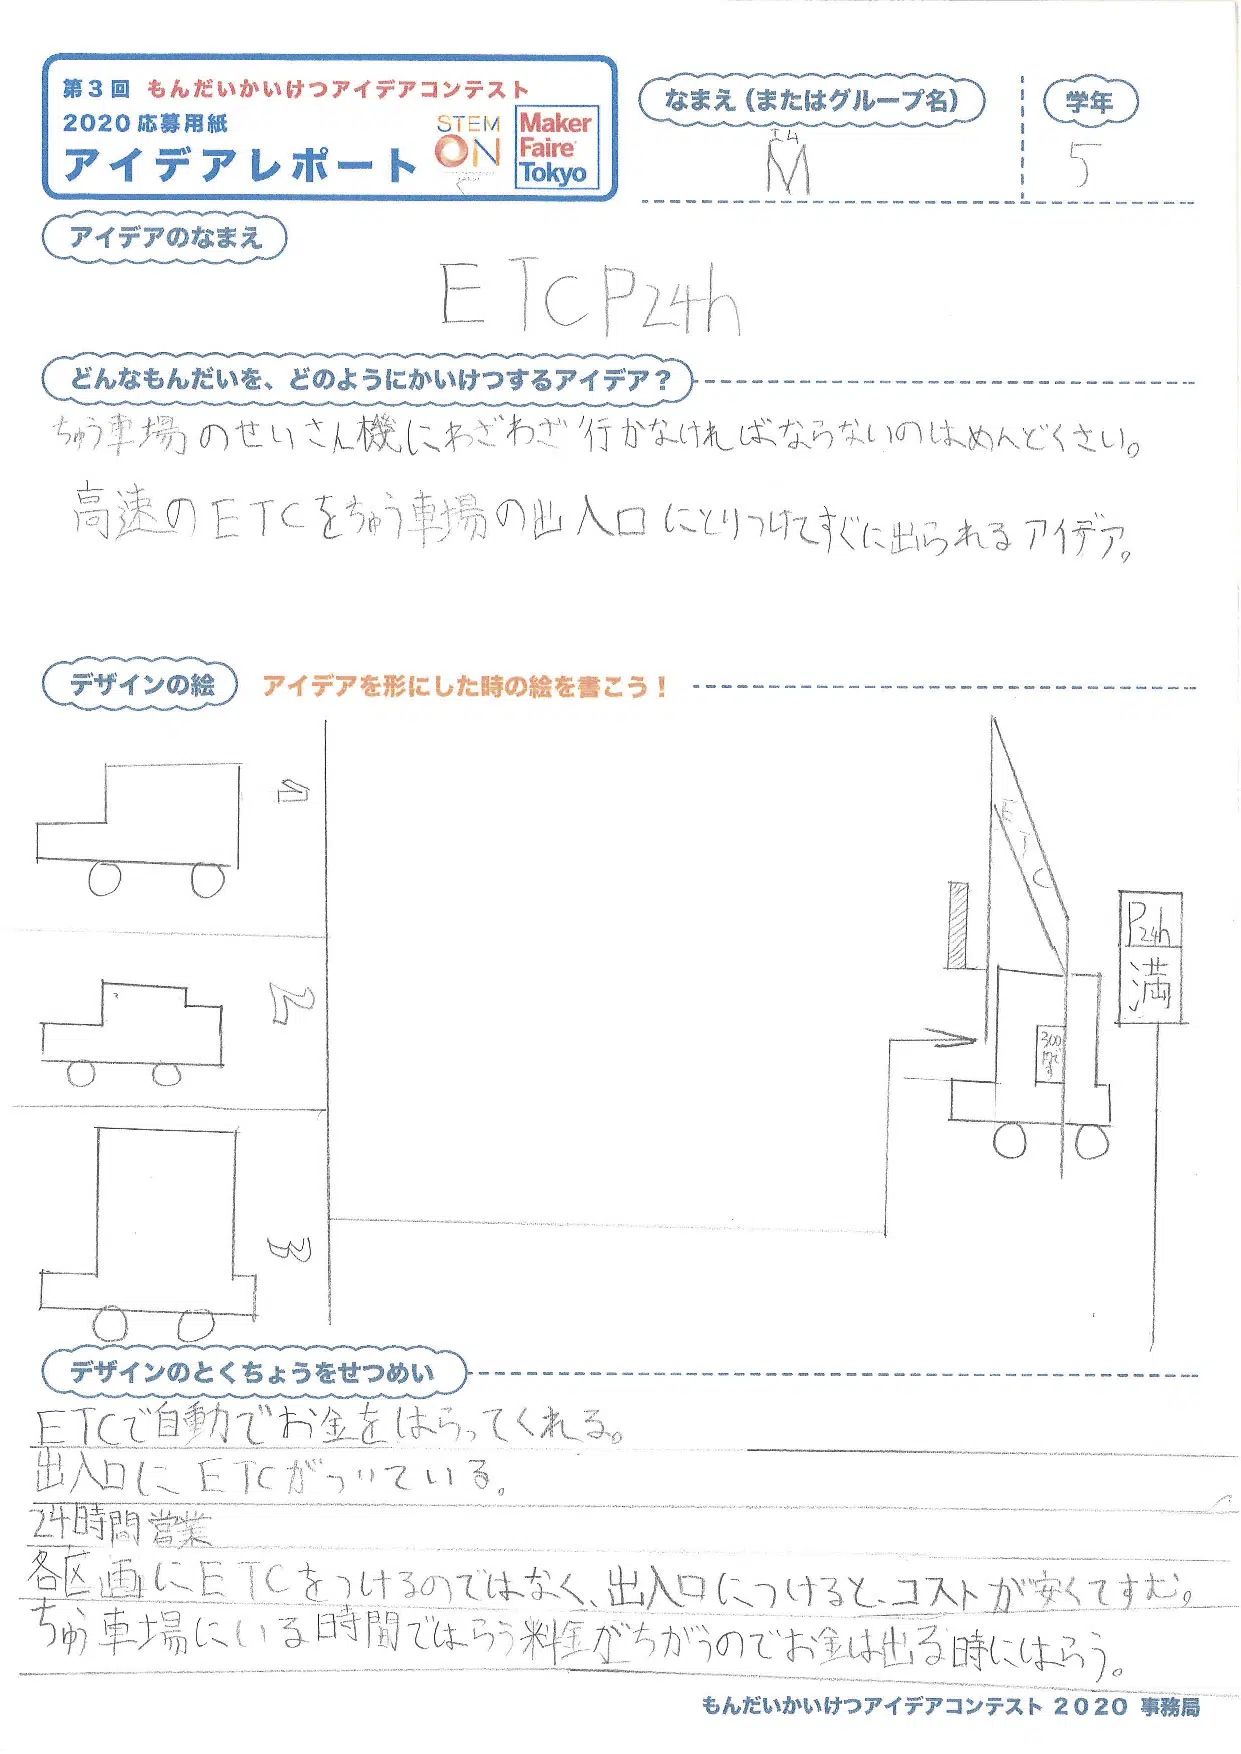 第3回 もんだいかいけつアイデアコンテスト
2020応募用紙
アイデアレポート
STEM
ON
Maker
Faire
Tokyo
なまえ(またはグループ名)
M
学年
5
アイデアのなまえ
ETCP24h
どんなもんだいを、どのようにかいけつするアイデア?
ちゅう車場のせいさん機にわざわざ行かなければならないのはめんどくさい。
高速のETCをちゅう車場の出入口にとりつけてすぐに出られるアイデア。
デザインの絵 アイデアを形にした時の絵を書こう!
1
2
3
ETC
P24h
満
300
デザインのとくちょうをせつめい
ETCで自動でお金をはらってくれる。
出入口にETCがついている。
24時間営業
各区画にETCをつけるのではなく、出入口につけると、コストが安くてすむ。
ちゅう車場にいる時間ではらう料金がちがうのでお金は出る時にはらう。
もんだいかいけつアイデアコンテスト 2020 事務局